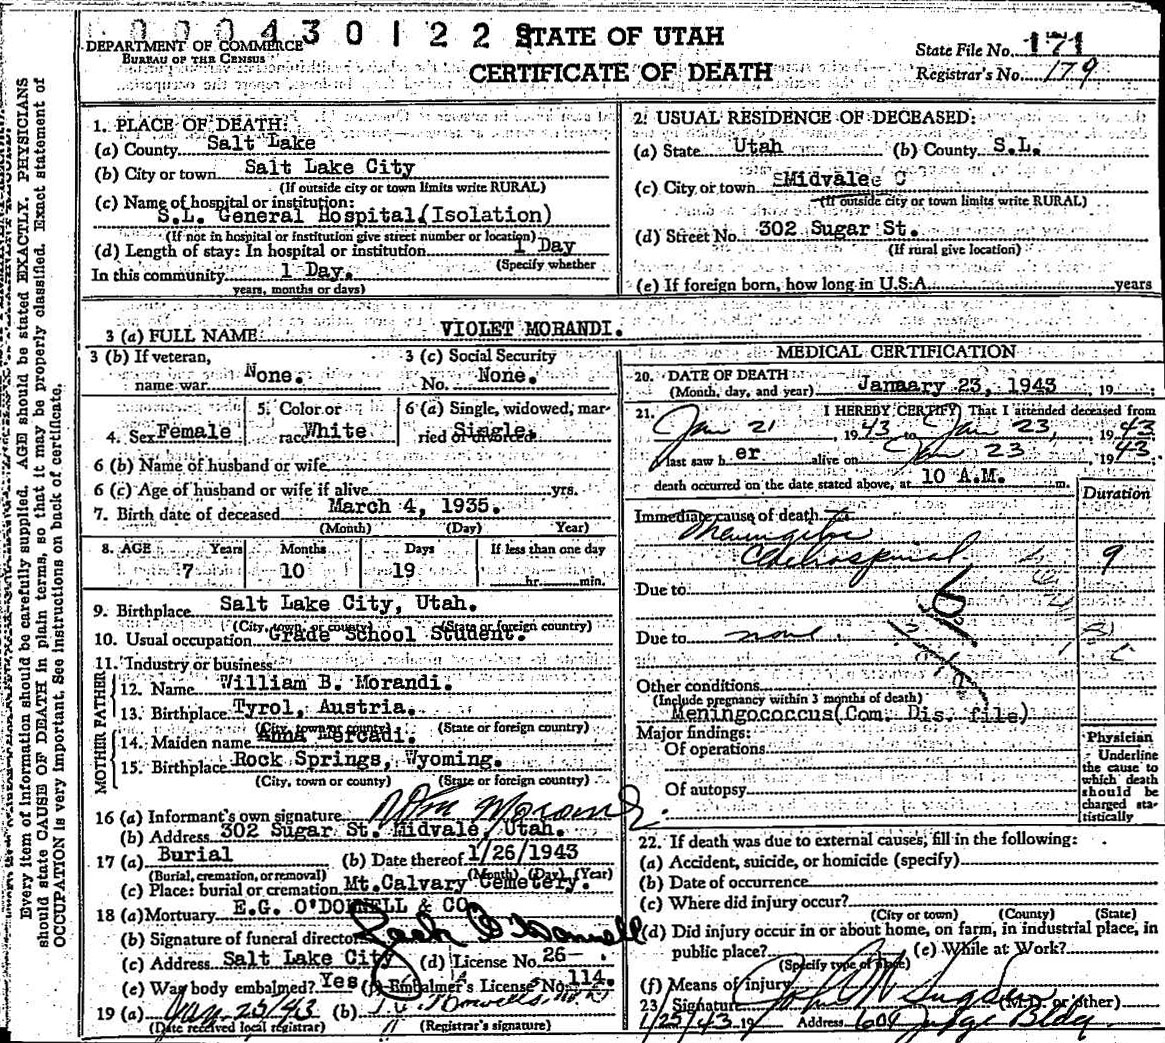 0 0 0 4 3 0 1 2 2 9
STATE OF UTAH
CERTIFICATE OF DEATH
DEPARTMENT OF COMMERCE
BUREAU OF THE CENSUS
State File No. 171
Registrar's No. 179
Every item of information should be carefully supplied. AGE should be stated EXACTLY. PHYSICIANS
should state CAUSE OF DEATH in plain terms, so that it may be properly classified. Exact statement of
OCCUPATION is very important. See instructions on back of certificate.
1. PLACE OF DEATH:
(a) County Salt Lake
(b) City or town Salt Lake City
(If outside city or town limits write RURAL)
(c) Name of hospital or institution:
S.L. General Hospital (Isolation)
(If not in hospital or institution give street number or location)
(d) Length of stay: In hospital or institution 1 Day
(Specify whether
In this community 1 Day.
years, months or days)
2. USUAL RESIDENCE OF DECEASED:
(a) State Utah (b) County S.L.
(c) City or town Midvale
(If outside city or town limits write RURAL)
(d) Street No. 302 Sugar St.
(If rural give location)
(e) If foreign born, how long in U.S.A. years
3 (a) FULL NAME VIOLET MORANDI.
3 (b) If veteran, name war None.
3 (c) Social Security No. None.
4. Sex Female
5. Color or race White
6 (a) Single, widowed, married or divorced Single.
6 (b) Name of husband or wife
6 (c) Age of husband or wife if alive yrs.
7. Birth date of deceased March 4, 1935.
(Month) (Day) Year)
8. AGE Years Months Days If less than one day
7 10 19 hr. min.
9. Birthplace Salt Lake City, Utah.
(City, town, or county) (State or foreign country)
10. Usual occupation Grade School Student.
11. Industry or business
FATHER
12. Name William B. Morandi.
13. Birthplace Tyrol, Austria.
(City, town or county) (State or foreign country)
MOTHER
14. Maiden name Anna
15. Birthplace Rock Springs, Wyoming.
(City, town or county) (State or foreign country)
16 (a) Informant's own signature Wm Morandi
(b) Address 302 Sugar St. Midvale, Utah.
17 (a) Burial (b) Date thereof 1/26/1943
(Burial, cremation, or removal) (Month) (Day) (Year)
(c) Place: burial or cremation Mt. Calvary Cemetery.
18 (a) Mortuary E.G. O'DONNELL & CO
(b) Signature of funeral director O'Donnell
(c) Address Salt Lake City (d) License No. 26-
(e) Was body embalmed? Yes (f) Embalmer's License No. 114
19 (a) Jan. 25/43 (b)
(Date received local registrar) (Registrar's signature)
MEDICAL CERTIFICATION
20. DATE OF DEATH
(Month, day, and year) Janaary 23, 1943, 19
21. I HEREBY CERTIFY, That I attended deceased from
Jan 21, 1943 to Jan 23, 1943
I last saw h er alive on Jan 23 1943.
death occurred on the date stated above, at 10 A.M. m.
Duration
Immediate cause of death
Meningitis
9
Due to
Due to none.
Other conditions
(Include pregnancy within 3 months of death)
Meningococcus (Com. Dis. file)
Major findings:
Of operations
Of autopsy
Physician
Underline
the cause to
which death
should be
charged sta-
tistically
22. If death was due to external causes, fill in the following:
(a) Accident, suicide, or homicide (specify)
(b) Date of occurrence
(c) Where did injury occur?
(City or town) (County) (State)
(d) Did injury occur in or about home, on farm, in industrial place, in
public place? (e) While at Work?
(Specify type of place)
(f) Means of injury
23. Signature John (M.D. or other)
1/25/43 19 Address 604 Judge Bldg.